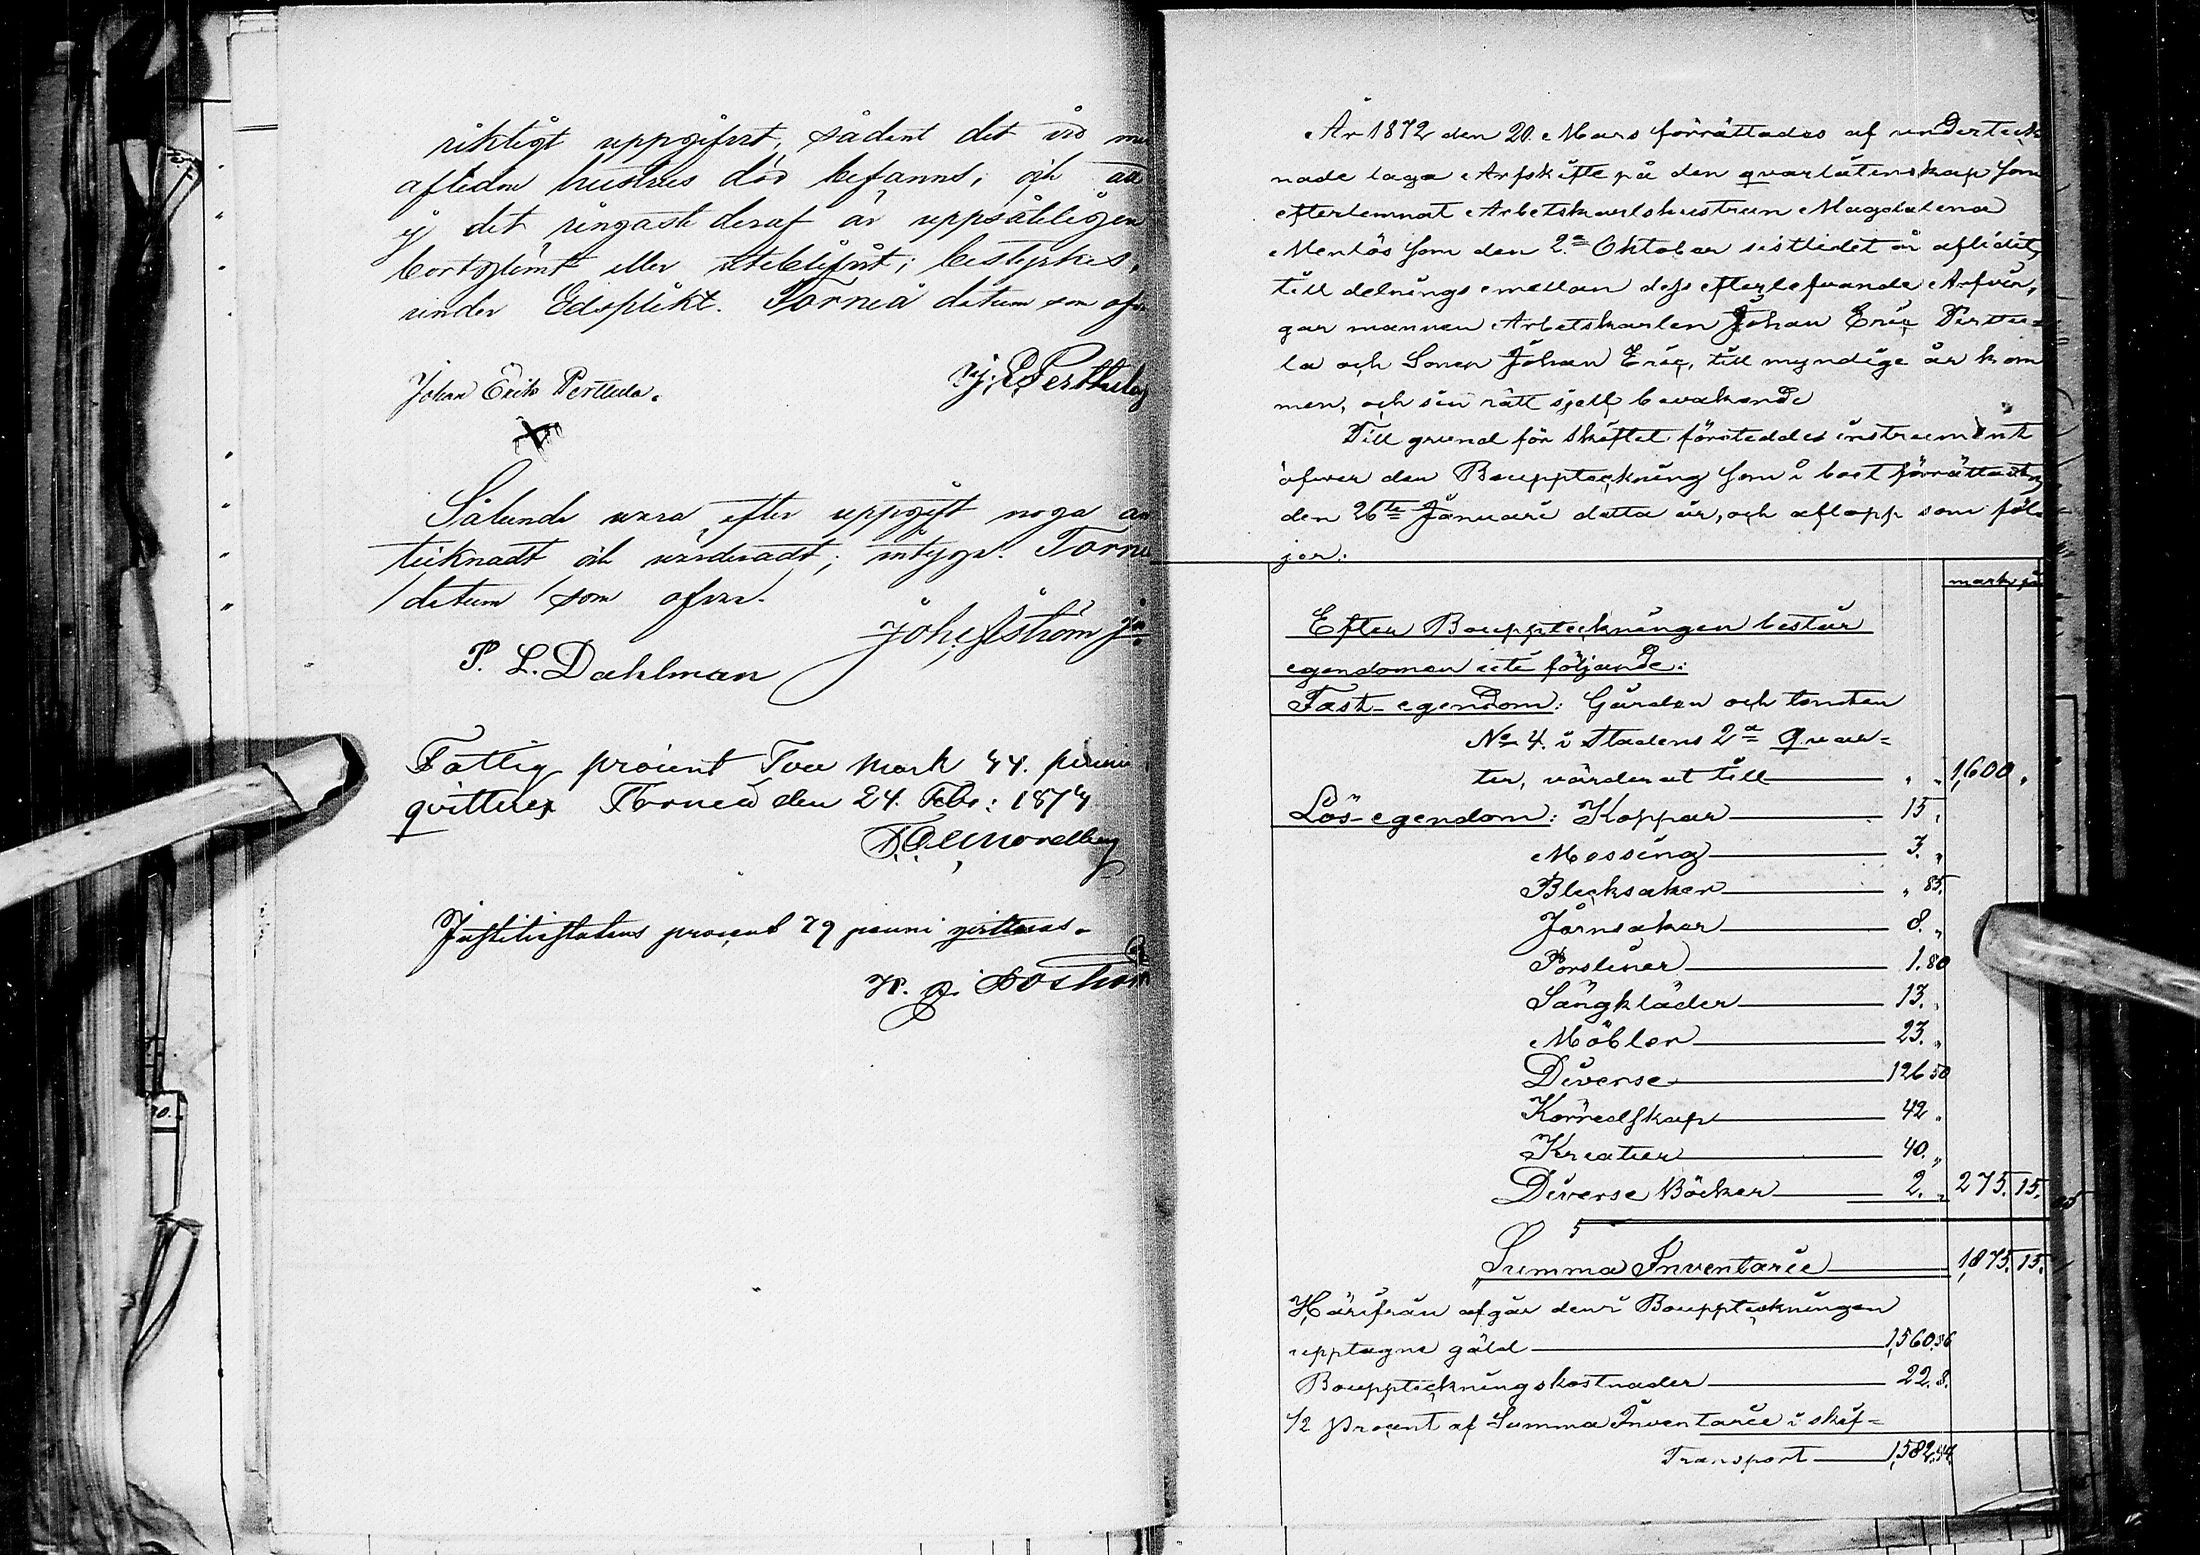 riktigt uppgifvit, sådant det vid min
aflidne hustrus död befanns, och att
ej det ringaste deraf är uppsåteligen
bortglömt eller uteblifvit; bestyrkes,
under Edsplikt. Torneå datum som ofvan
Johan Erik Perttula.
J. E. Perttula
Sålunda vara efter uppgift noga an
tecknadt och värderadt; intyga. Torneå
datum som ofvan.
P. L. Dahlman
Fattig procent Två mark 44. penni
qvitteras Torneå den 24. Febr: 1872
Justitiestatens procent 29 penni qvitteras.
År 1872 den 20. Mars förrättades af underteck
nade laga Arfskifte på den qvarlåtenskap som
efterlemnat Arbetskarlshustrun Magdalena
Mentös som den 2a Oktober sistlidet år aflidit,
till delnings emellan dess efterlefvande Arfvin,
gar mannen Arbetskarlen Johan Eric Perttu=
la och Sonen Johan Eric, till myndige år kom
men, och sin rätt sjelf bevakande
Till grund för skiftet företeddes instrument
öfver den Bouppteckning som i boet förrättats
den 26te Januari detta år, och aflopp som föl-
jer:
mark pi
Efter Bouppteckningen består
egendomen uti följande:
Fast-egendom: Gården och tomten
No 4. i Stadens 2a Qvar=
ter, värderat till " " 1,600 "
Lös-egendom: Koppar 15.
Messing 3. "
Blecksaker " 85.
Jernsaker 8. "
Porsliner 1.80
Sängkläder 13. "
Möbler 23. "
Diverse 126 50
Körredskap 42 "
Kreatur 40. "
Diverse Böcker 2. " 275. 15.
Summa Inventarii 1,875. 15.
Härifrån afgår den i Bouppteckningen
upptagne gäld 1,560.36
Bouppteckningskostnader 22. 8.
1/2 Procent af Summa Inventarii i skif=
Transport 1,582,44